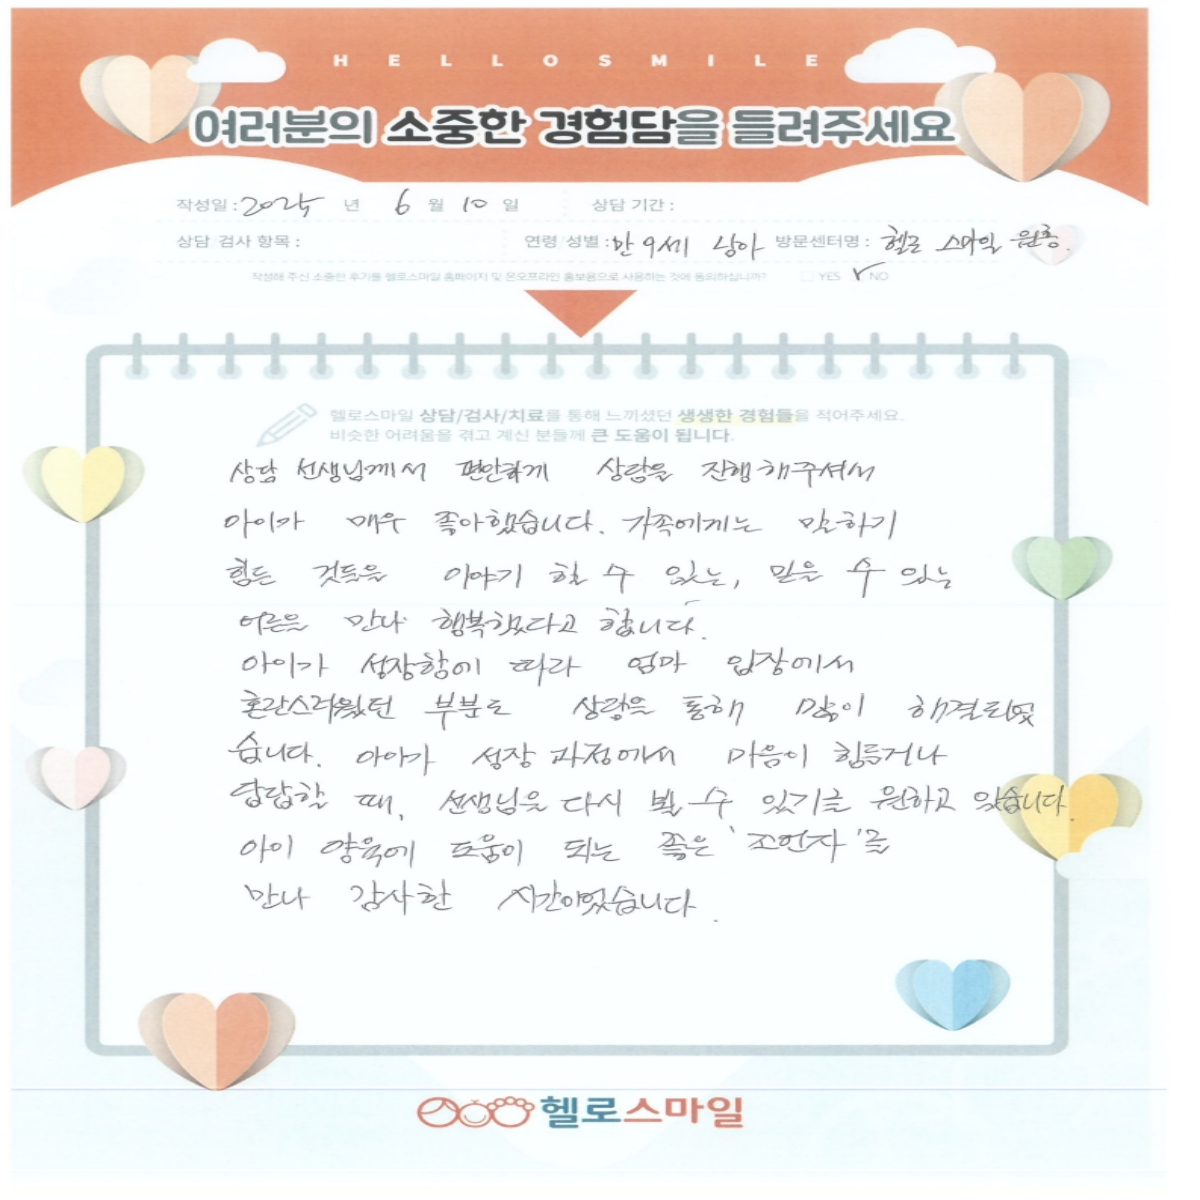 HELLOSMILE
여러분의 소중한 경험담을 들려주세요
작성일 : 2025 년 6 월 10 일 상담 기간 :
상담/검사 항목 : 연령/성별 : 만 9세 남아 방문센터명 : 헬로 스마일 원흥.
작성해 주신 소중한 후기를 헬로스마일 홈페이지 및 온오프라인 홍보용으로 사용하는 것에 동의하십니까? YES NO
헬로스마일 상담/검사/치료를 통해 느끼셨던 생생한 경험들을 적어주세요.
비슷한 어려움을 겪고 계신 분들께 큰 도움이 됩니다.
상담 선생님께서 편안하게 상담을 진행해주셔서
아이가 매우 좋아했습니다. 가족에게는 말하기
힘든 것들을 이야기 할 수 있는, 믿을 수 있는
어른을 만나 행복했다고 합니다.
아이가 성장함에 따라 엄마 입장에서
혼란스러웠던 부분도 상담을 통해 많이 해결되었
습니다. 아이가 성장 과정에서 마음이 힘들거나
답답할 때, 선생님을 다시 뵐 수 있기를 원하고 있습니다.
아이 양육에 도움이 되는 좋은 '조언자'를
만나 감사한 시간이었습니다.
헬로스마일